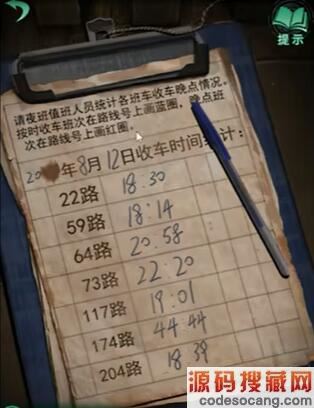 提示
请夜班值班人员统计各班车收车晚点情况。
按时收车班次在路线号上画蓝圈，晚点班
次在路线号上画红圈。
20 年8月12日收车时间统计：
22路 18:30
59路 18:14
64路 20:58
73路 22:20
117路 19:01
174路 44:44
204路 18:39
源码搜藏网
codesocang.com